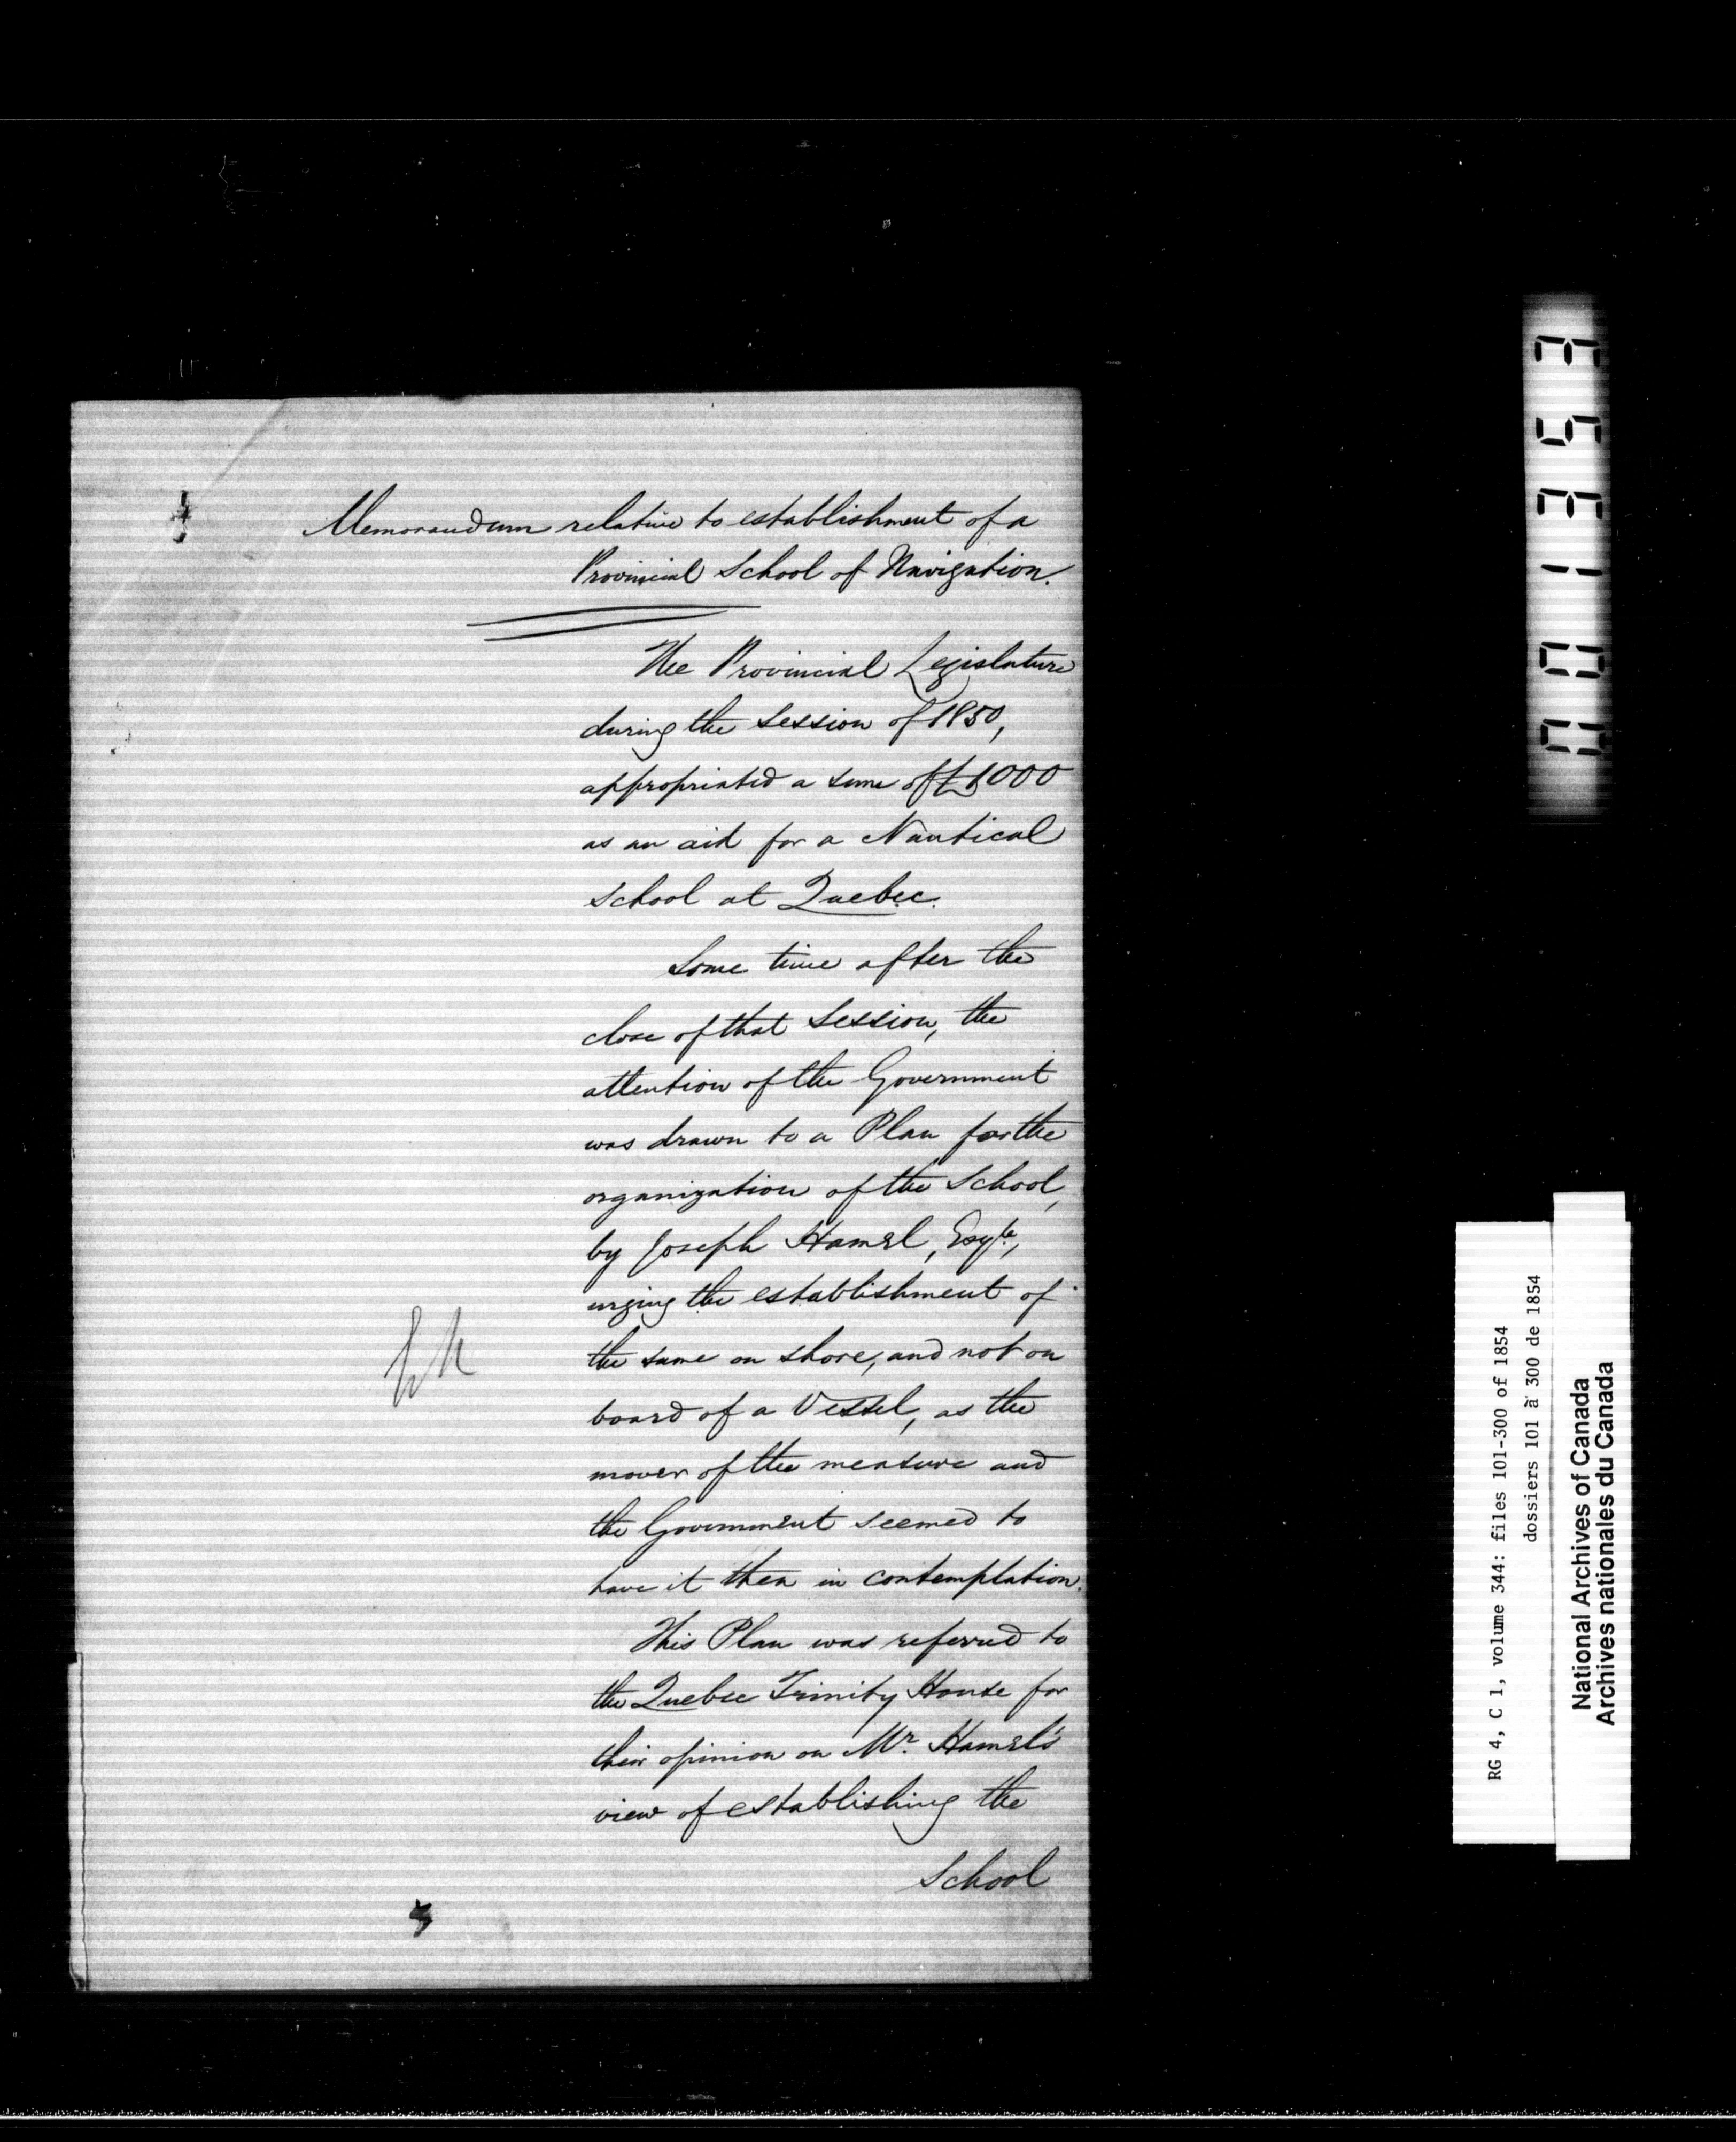 Memorandum relative to establishment of a
Provincial School of Navigation.
The Provincial Legislature
during the Session of 1850,
appropriated a sum of £1000
as an aid for a Nautical
School at Quebec.
Some time after the
close of that Session, the
attention of the Government
was drawn to a Plan for the
organization of the School,
by Joseph Hamel, Esqre,
urging the establishment of
the same on shore, and not on
board of a Vessel, as the
mover of the measure and
the Government seemed to
have it then in contemplation.
This Plan was referred to
the Quebec Trinity House for
their opinion on Mr. Hamel's
view of establishing the
School
001353
RG 4, C 1, volume 344: files 101-300 of 1854
dossiers 101 à 300 de 1854
National Archives of Canada
Archives nationales du Canada